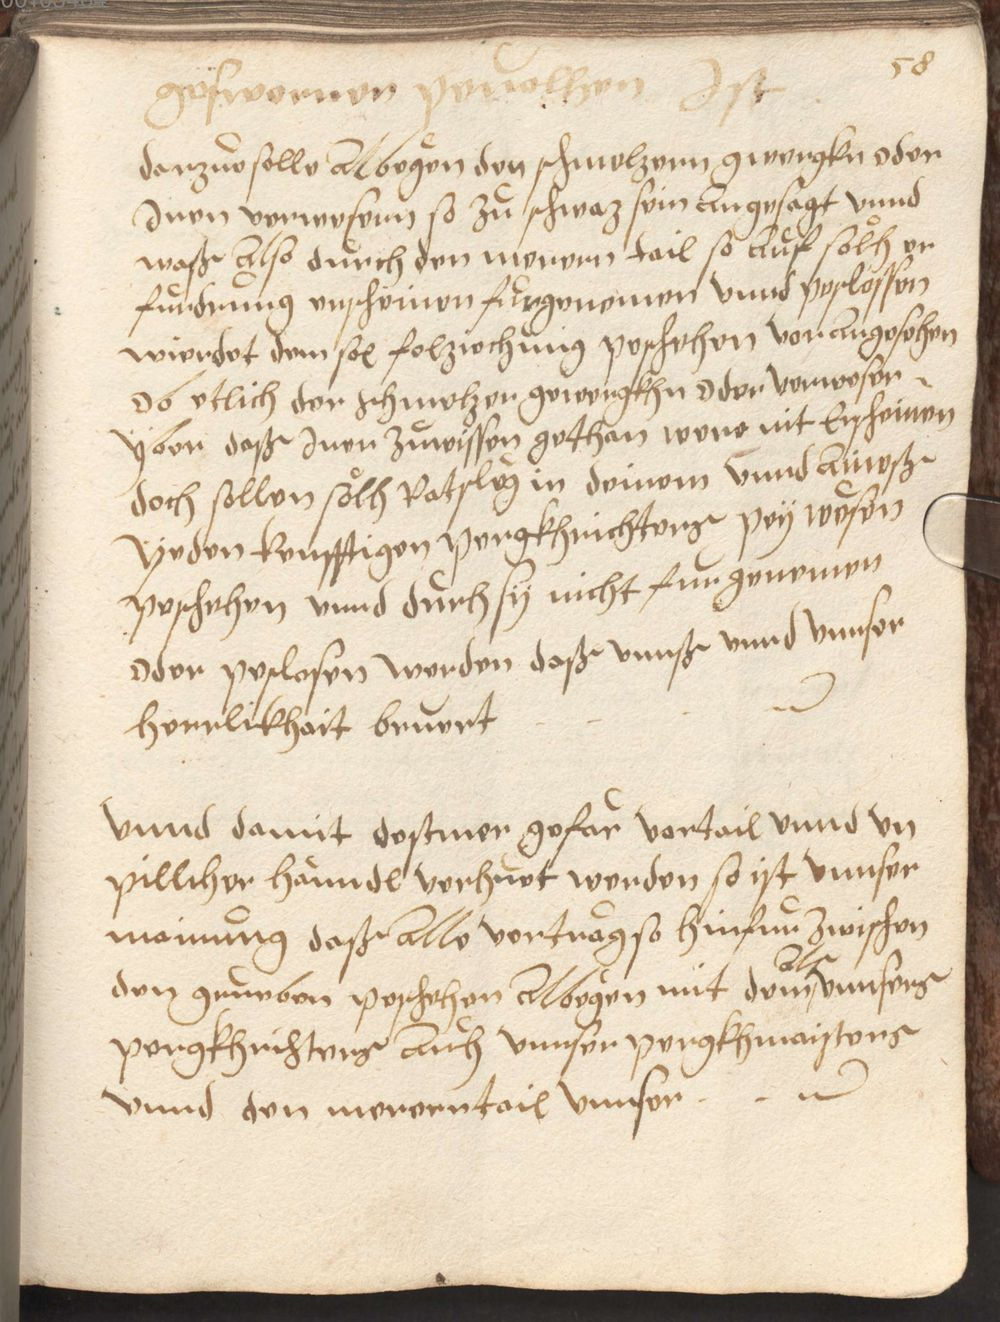 58
geschwornen pevolhen Ist
darzue solle Albegen den schmelzern gwergkn oder
Iren verwesern so zu schwaz sein angesagt vnnd
waß Also durch den merern tail so auf sölh er
furdrung erscheinen furgenomen vnnd peslossen
wierdet dem sol folziechung peschehen vnangesehen
Ob etlich der schmelzer gewergkhn oder verweser
yber daß Inen zuwissen gethan were nit Erscheinen
doch sollen sölh Ratsleg in deinem vnnd Aineß
yeden kunfftigen pergkhrichters pey wesen
peschehen vnnd durch sy nicht furgenomen
oder peslosen werden daß vnnß vnnd vnnser
herrlikhait beruert
Vnnd damit destmer gefär vortail vnnd vn
pillicher hänndl verhuet werden so ist vnnser
mainung daß Alle verträg so hinfur zwischen
den grueben peschehen Albegen mit deins vnnsers
pergkhrichters auch vnnser pergkhmaisters
vnnd den merern tail vnnser